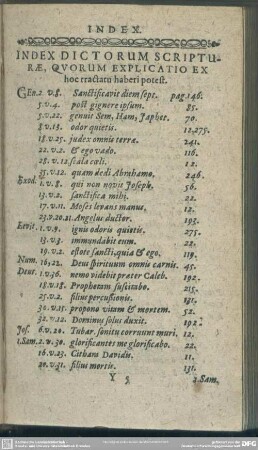 INDEX.
INDEX DICTORUM SCRIPTU-
RÆ, QVORUM EXPLICATIO EX
hoc tractatu haberi potest.
Gen. 2. v. 8. Sanctificavit diem sept. pag. 146.
5. v. 4. post gignere ipsum. 85.
5. v. 22. genuit Sem, Ham, Japhet. 70.
8. v. 15. odor quietis. 12, 275.
18. v. 25. judex omnis terræ. 241.
22. v. 2. & ego vado. 116.
28. v. 12. scala cœli. 12.
35. v. 12. quam dedi Abrahamo. 246.
Exod. 1. v. 8. qui non novit Joseph. 56.
13. v. 2. sanctifica mihi. 22.
17. v. 11. Moses levans manus. 12.
23. v. 20. 21. Angelus ductor. 195.
Levit. 1. v. 9. ignis odoris quietis. 275.
13. v. 3. immundabit eum. 22.
19. v. 2. estote sancti, quia & ego. 119.
Num. 16. 22. Deus spirituum omnis carnis. 45.
Deut. 1. v. 36. nemo videbit præter Caleb. 192.
18. v. 18. Prophetam suscitabo. 215.
25. v. 2. filius percussionis. 131.
30. v. 15. propono vitam & mortem. 52.
32. v. 12. Dominus solus duxit. 192.
Jos. 6. v. 20. Tubar. sonitu corruunt muri. 12.
1. Sam. 2. v. 30. glorificantes me glorificabo. 22.
16. v. 23. Cithara Davidis. 11.
20. v. 31. filius mortis. 131.
Y 5 2. Sam.